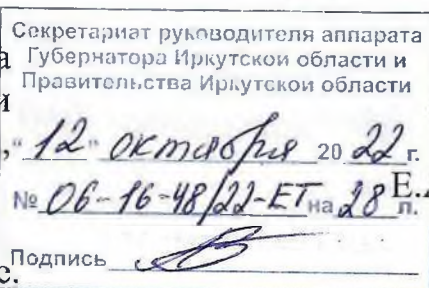 Секретариат руководителя аппарата
Губернатора Иркутской области и
Правительства Иркутской области
"12" октября 2022 г.
№ 06-16-48/22-ЕТ на 28 л.
Е.
Подпись
с.